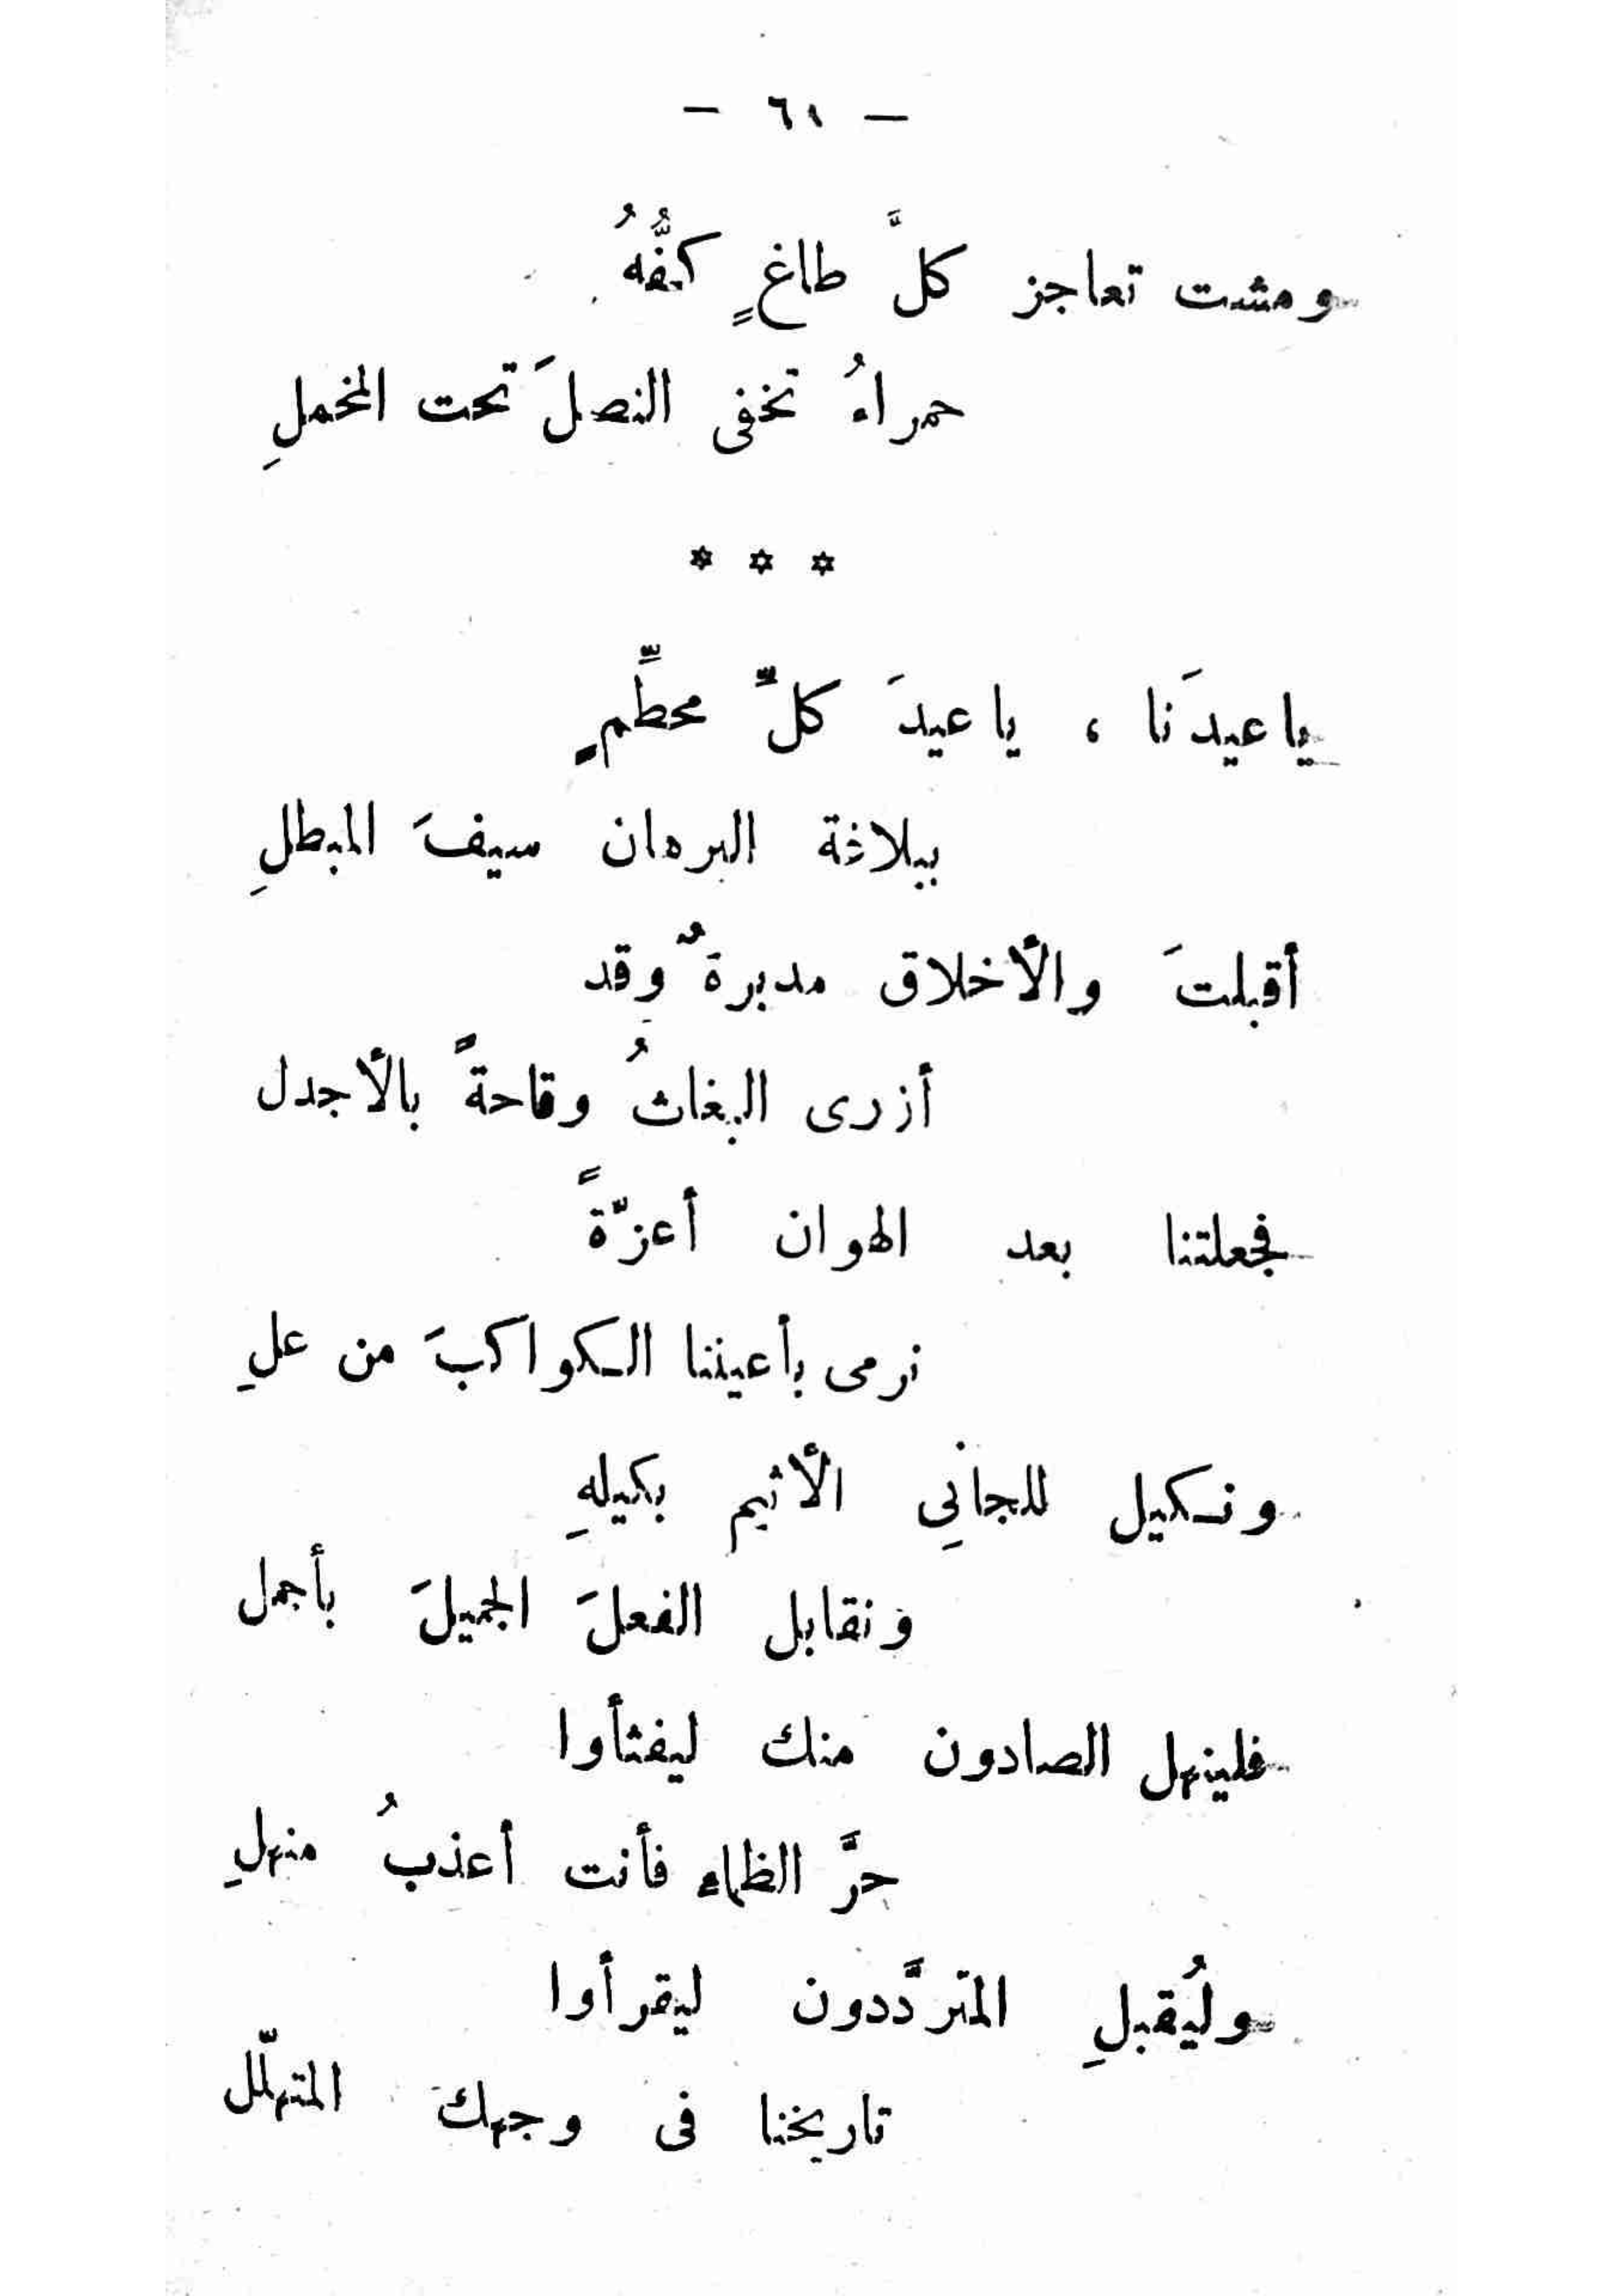 — ٦١ —
ومشت تعاجز كلَّ طاغٍ كفُّهُ
حمراءُ تخفى النصلَ تحت المخملِ
* * *
ياعيدَنا ، ياعيدَ كلِّ محطِّمٍ
ببلاغة البرهان سيفَ المبطلِ
أقبلتَ والأخلاق مدبرةٌ وقد
أزرى البغاثُ وقاحةً بالأجدل
فجعلتنا بعد الهوان أعزّةً
نرمى بأعيننا الكواكبَ من علِ
ونكيل للجانِى الأثيم بكيلهِ
ونقابل الفعلَ الجميلَ بأجمل
فلينهل الصادون منك ليفثأوا
حرَّ الظماء فأنت أعذبُ منهلِ
وليُقبلِ المتردَّدون ليقرأوا
تاريخنا فى وجهك المتهلّل